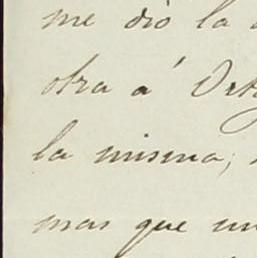 me dió la
otra á Ort
la misma,
mas que un